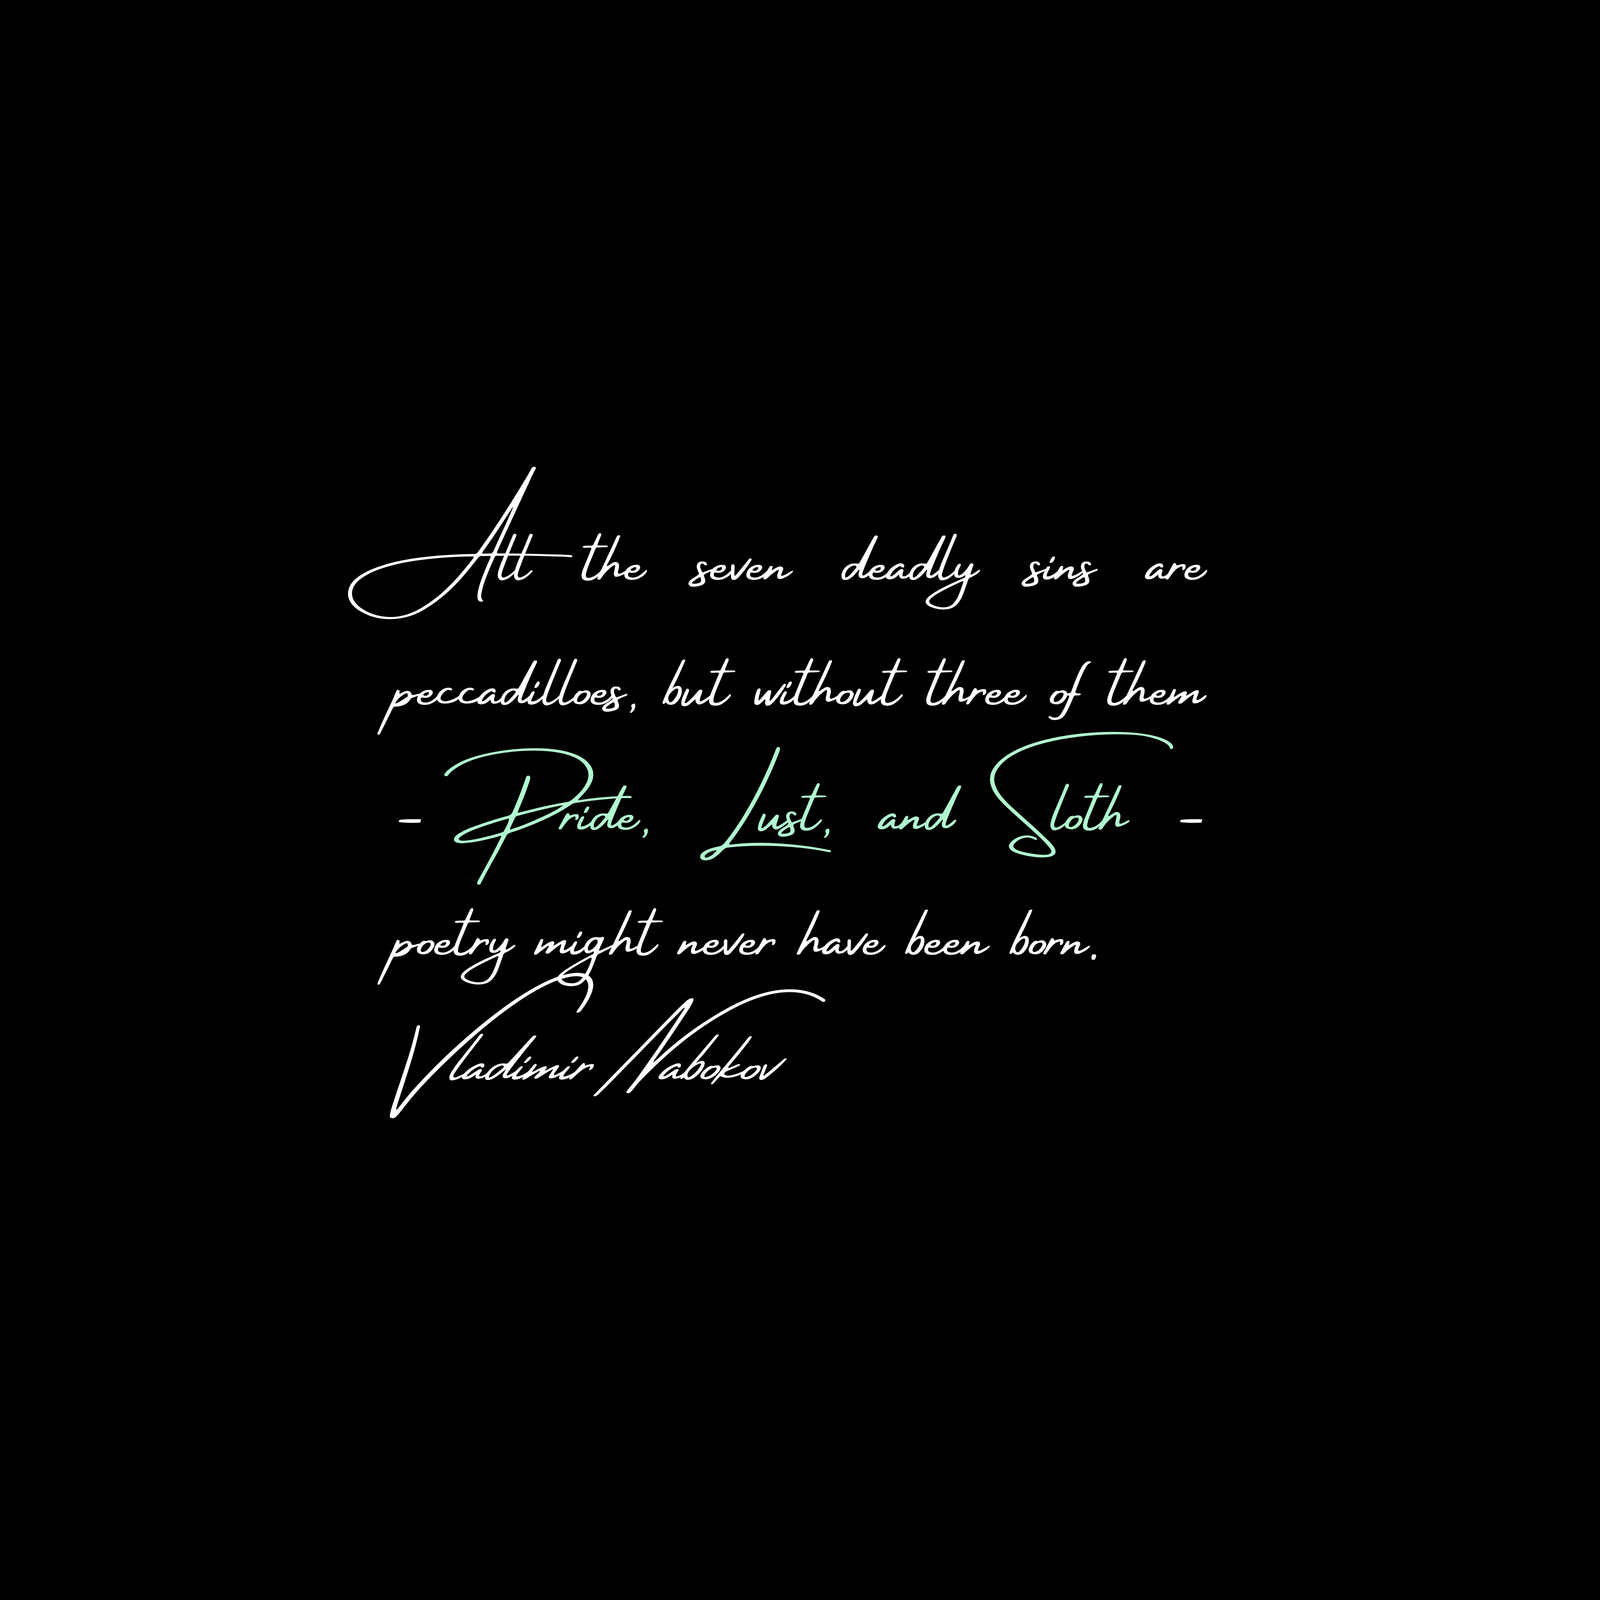 All the seven deadly sins are
peccadilloes, but without three of them
- Pride, Lust, and Sloth -
poetry might never have been born.
Vladimir Nabokov